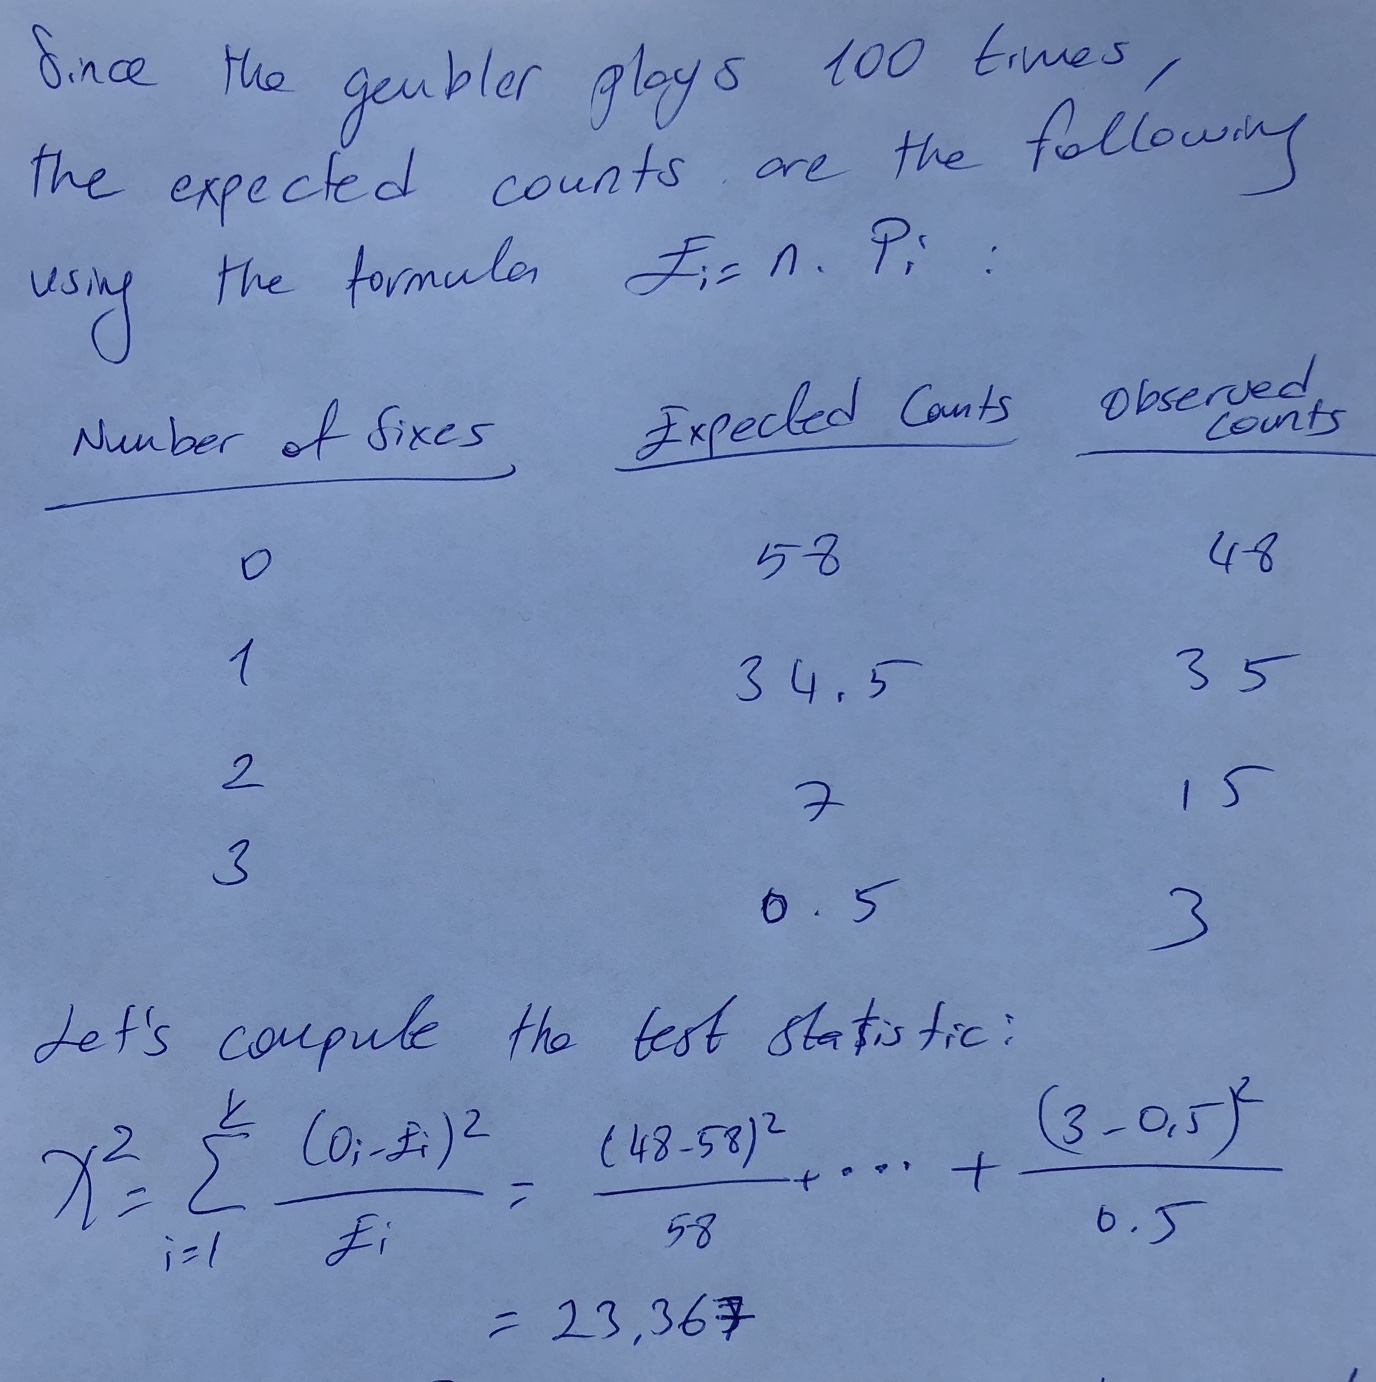 Since the geubler plays 100 times,
the expected counts are the following
using the formula Ei = n. Pi :
Number of Sixes Expected Counts Observed counts
0 58 48
1 34.5 35
2 7 15
3 0.5 3
Let's compute the test statistic:
χ² = Σ (Oi-Ei)² / Ei = (48-58)² / 58 + ... + (3-0,5)² / 0.5
i=1
= 23,367